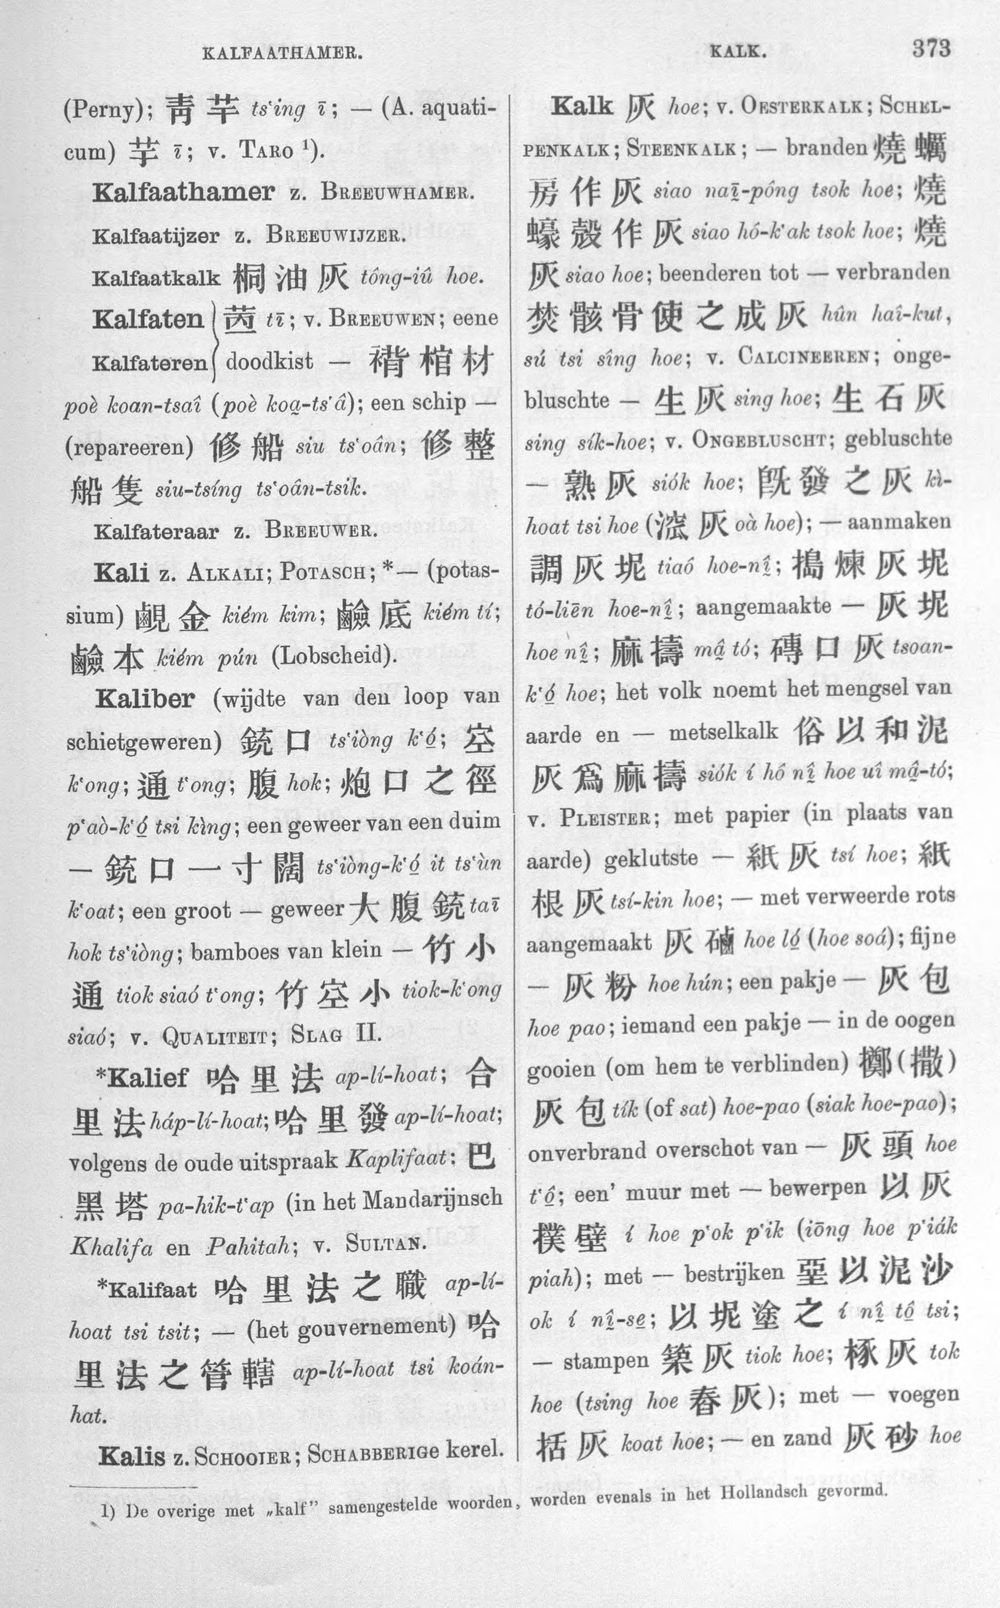 KALFAATHAMER.
KALK.
373
(Perny); 靑芋 ts‘ing ī; — (A. aquati-
cum) 芋 ī; v. TARO ¹).
Kalfaathamer z. BREEUWHAMER.
Kalfaatijzer z. BREEUWIJZER.
Kalfaatkalk 桐油灰 tông-iû hoe.
Kalfaten 苪 tī; v. BREEUWEN; eene
Kalfateren doodkist — 褙棺材
poè koan-tsaî (poè koa̱-ts‘â); een schip —
(repareeren) 修船 siu ts‘oân; 修整
船隻 siu-tsíng ts‘oân-tsik.
Kalfateraar z. BREEUWER.
Kali z. ALKALI; POTASCH; *— (potas-
sium) 鹼金 kiém kim; 鹼底 kiém tí;
鹼本 kiém pún (Lobscheid).
Kaliber (wijdte van den loop van
schietgeweren) 銃口 ts‘iòng k‘ó̱; 空
k‘ong; 通 t‘ong; 腹 hok; 炮口之徑
p‘aò-k‘ó̱ tsi kìng; een geweer van een duim
— 銃口一寸闊 ts‘iòng-k‘ó̱ it ts‘ùn
k‘oat; een groot — geweer 大腹銃 taī
hok ts‘iòng; bamboes van klein — 竹小
通 tiok siaó t‘ong; 竹空小 tiok-k‘ong
siaó; v. QUALITEIT; SLAG II.
*Kalief 哈里法 ap-lí-hoat; 合
里法 háp-lí-hoat; 哈里發 ap-lí-hoat;
volgens de oude uitspraak Kaplifaat; 巴
黑塔 pa-hik-t‘ap (in het Mandarijnsch
Khalifa en Pahitah; v. SULTAN.
*Kalifaat 哈里法之職 ap-lí-
hoat tsi tsit; — (het gouvernement) 哈
里法之管轄 ap-lí-hoat tsi koán-
hat.
Kalis z. SCHOOIER; SCHABBERIGe kerel.
Kalk 灰 hoe; v. OESTERKALK; SCHEL-
PENKALK; STEENKALK; — branden 燒蠣
房作灰 siao naī̱-pông tsok hoe; 燒
蠔殼作灰 siao hó-k‘ak tsok hoe; 燒
灰 siao hoe; beenderen tot — verbranden
焚骸骨使之成灰 hûn haî-kut,
sú tsi sîng hoe; v. CALCINEEREN; onge-
bluschte — 生灰 sing hoe; 生石灰
sing sík-hoe; v. ONGEBLUSCHT; gebluschte
— 熟灰 siók hoe; 旣發之灰 kì-
hoat tsi hoe (灰 oà hoe); — aanmaken
調灰坭 tiaó hoe-nî̱; 搗煉灰坭
tó-liēn hoe-nî̱; aangemaakte — 灰坭
hoe nî̱; 麻擣 mâ̱ tó; 磚口灰 tsoan-
k‘ó̱ hoe; het volk noemt het mengsel van
aarde en — metselkalk 俗以和泥
灰爲麻擣 siók í hô nî̱ hoe uî mâ̱-tó;
v. PLEISTER; met papier (in plaats van
aarde) geklutste — 紙灰 tsí hoe; 紙
根灰 tsí-kin hoe; — met verweerde rots
aangemaakt 灰磠 hoe ló̱ (hoe soá); fijne
— 灰粉 hoe hún; een pakje — 灰包
hoe pao; iemand een pakje — in de oogen
gooien (om hem te verblinden) 擲(撒)
灰包 tík (of sat) hoe-pao (siak hoe-pao);
onverbrand overschot van — 灰頭 hoe
t‘ô̱; een’ muur met — bewerpen 以灰
撲壁 í hoe p‘ok p‘ik (iōng hoe p‘iák
piah); met — bestrijken 堊以泥沙
ok í nî̱-se̱; 以坭塗之 í nî̱ tô̱ tsi;
— stampen 築灰 tiok hoe; 椓灰 tok
hoe (tsing hoe 舂灰); met — voegen
括灰 koat hoe; — en zand 灰砂 hoe
1) De overige met „kalf” samengestelde woorden, worden evenals in het Hollandsch gevormd.